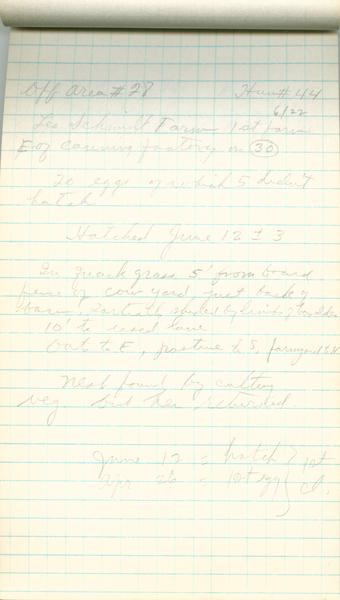 Off area #28 Hen # 44
6/22
Les Schmidt Farm 1st farm
E of canning factory on 30
20 eggs of which 5 didn't
hatch
Hatched June 12 ± 3
In quack grass 5' from board
fence of cow yard just back of
barn, Partially shaded by limbs of box elder
10' to used lane
Oats to E, pasture to S, farmyard
Nest found by cutting
veg. but hen returned
June 12 = hatch } 1st
Apr 26 = 1st egg } cl.